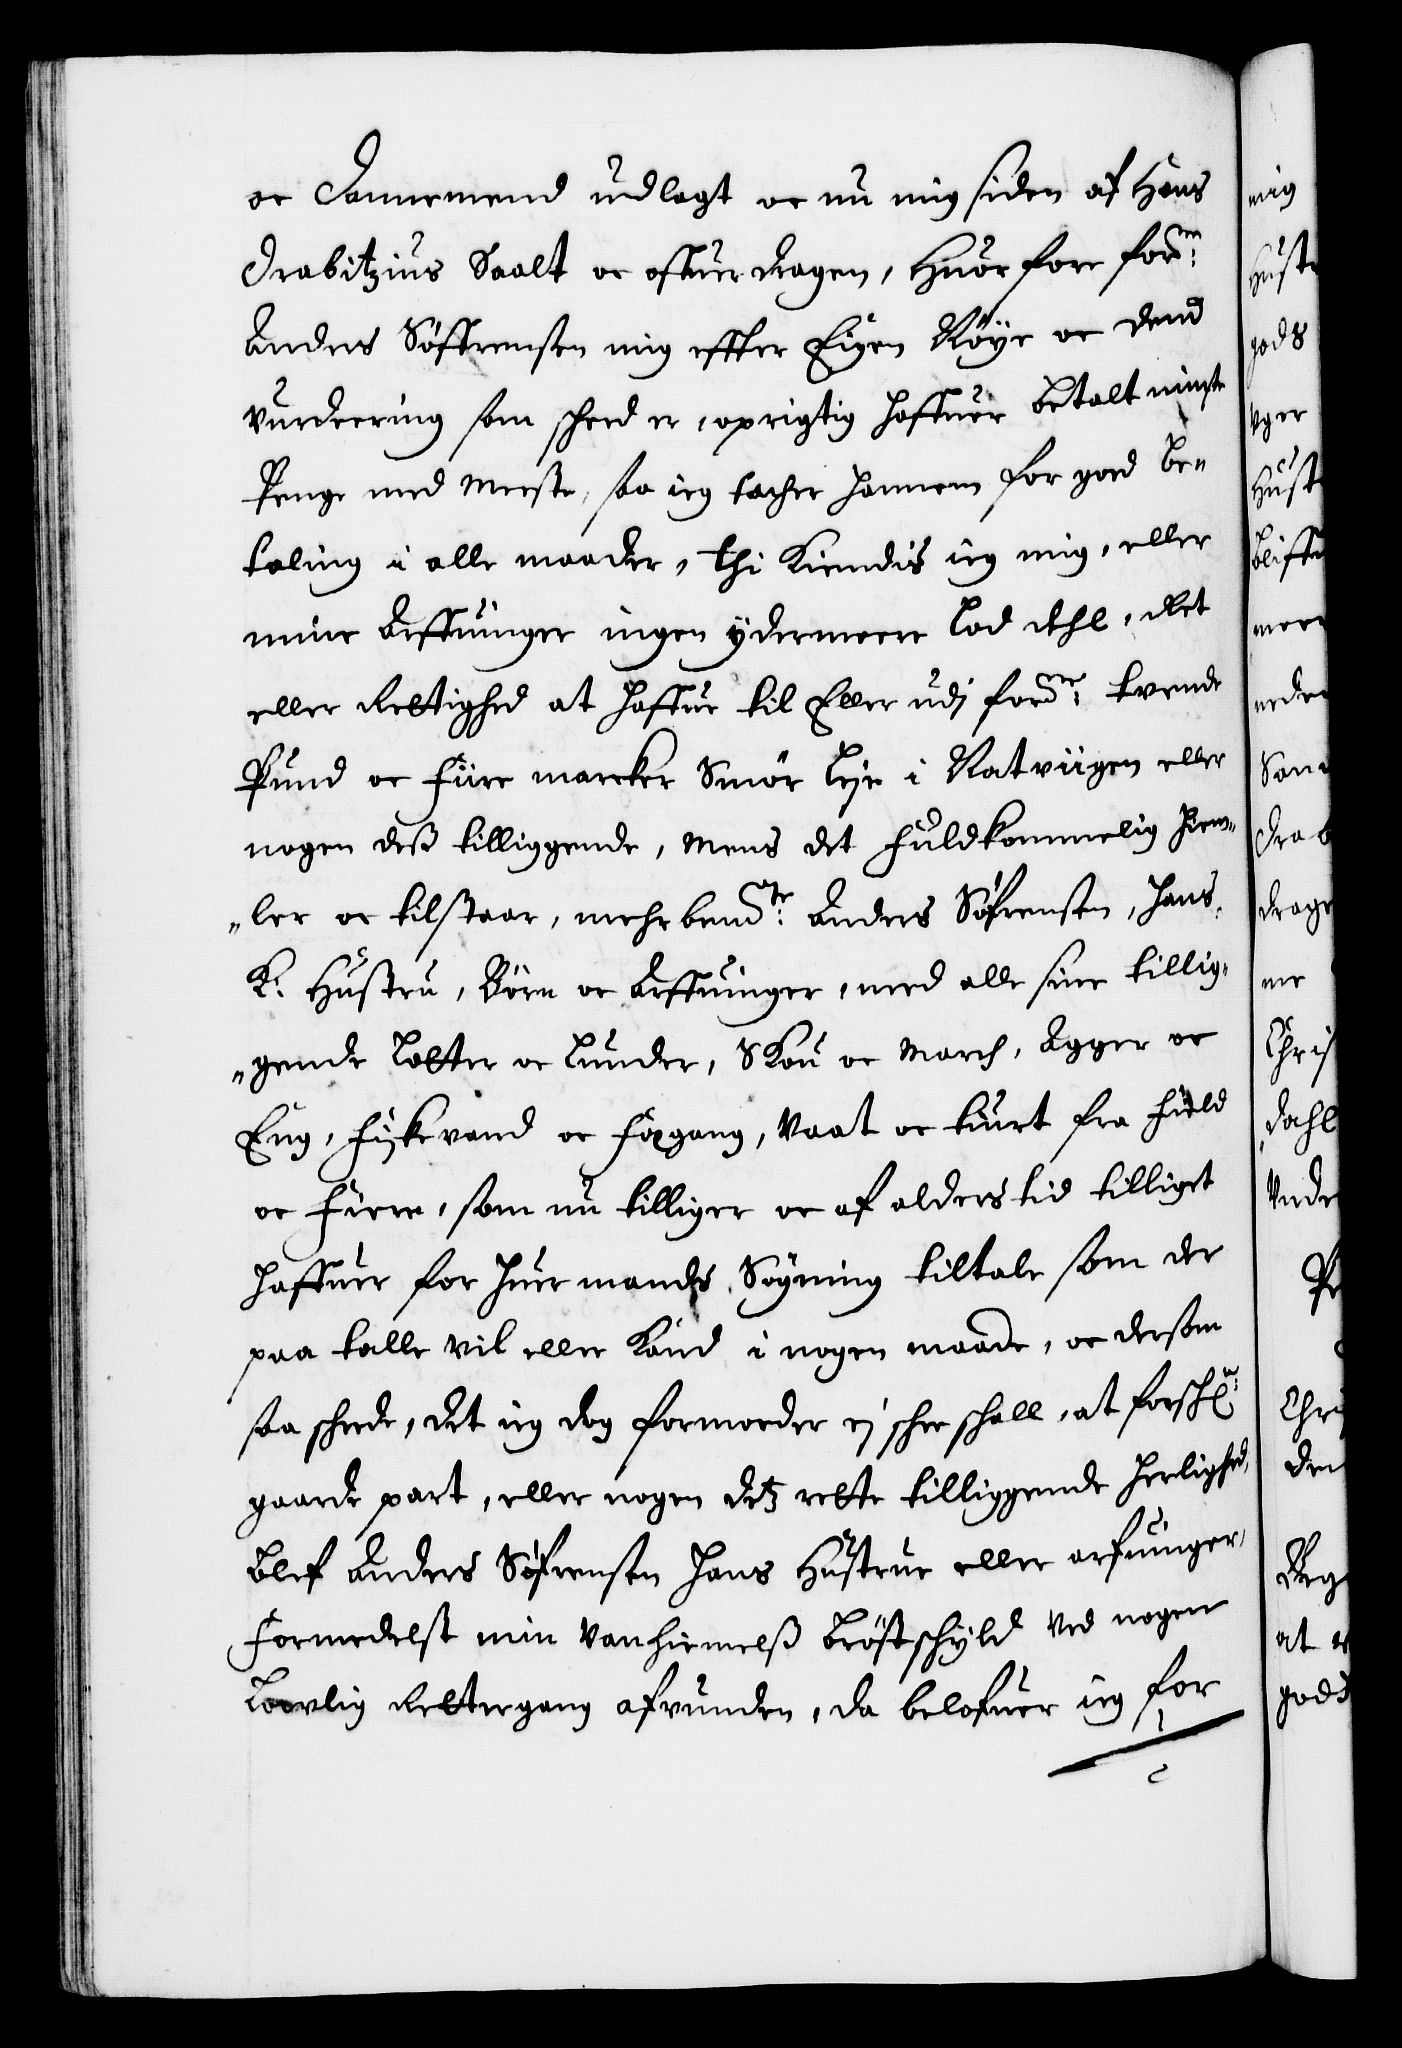 oc Dannemend udlagt oc nu mig siden af Hans
Drabitzius Saalt oc offuerdragen, Huorfore fornn:
Anders Söffrensen mig effter Eigen Nöye oc dend
vurdering som scheed er, oprigtig haffuer betalt minste
Penge med meeste, saa ieg tacher hannem for goed be„
taling i alle maader, thi Kiendis ieg mig, eller
mine Arffuinger ingen ydermeere Lod dehl, Ret
eller Rettighed at haffue til Eller udj forne: tvende
Pund oc fiire marcker Smör Leje i Natviigen eller
nogen deß tilliggende, Mens det fuldkommelig Hiem„
„ler oc tilstaar, mehrbemte: Anders Söfrensen, hans
K: Hustru, Börn oc Arffuinger, med alle sine tillig„
„gende Lotter oc Lunder, Skou oc March, Agger oc
Eng, Fiskevand oc Fægang, Vaat oc tiurt fra Field
oc Fiere, som nu tilliger oc af alders tid tilliget
haffuer for huer mands Sögning tiltale som der
paa talle vil eller Kand i nogen maade, oc dersom
saa scheede, det ieg dog formoeder ej schee schall, at forschne:
gaarde part, eller nogen detz rette tilliggende herlighed,
blef Anders Söfrensen hans Hustrue eller arfuinger,
formedelst min vanhiemelß bröstschyld ved nogen
Loovlig Rettergang afvunden, da belofuer ieg for
mig
Hust
gods
Vger
Hust
bliffu
meer
neden
Sam
Drab
drage
me
Chris
dahl
Vnde
Pe
Chri
den
Beg
at
gods